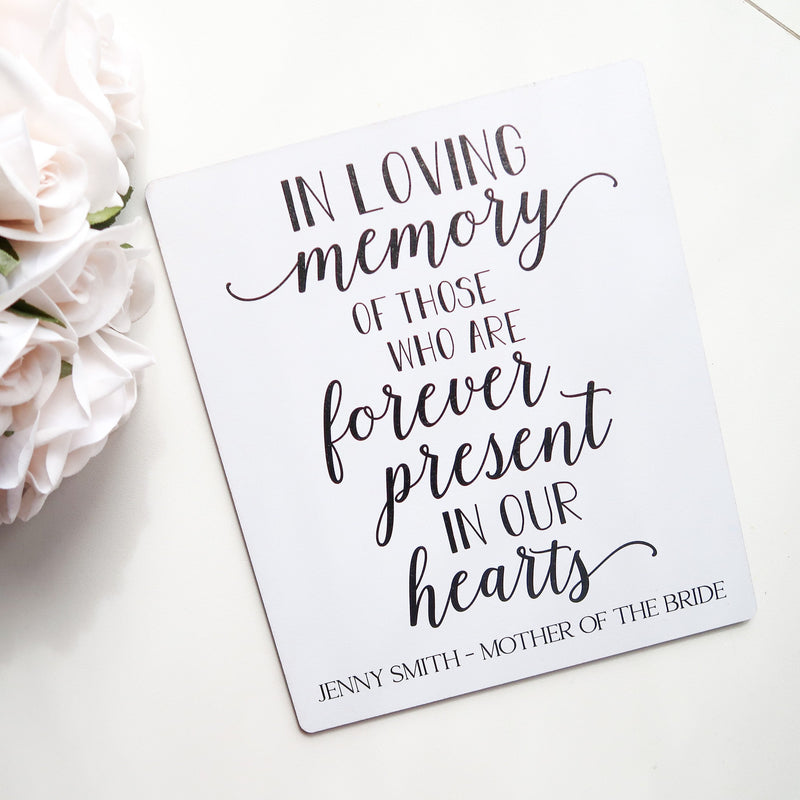 IN LOVING
memory
OF THOSE
WHO ARE
forever
present
IN OUR
hearts
JENNY SMITH - MOTHER OF THE BRIDE